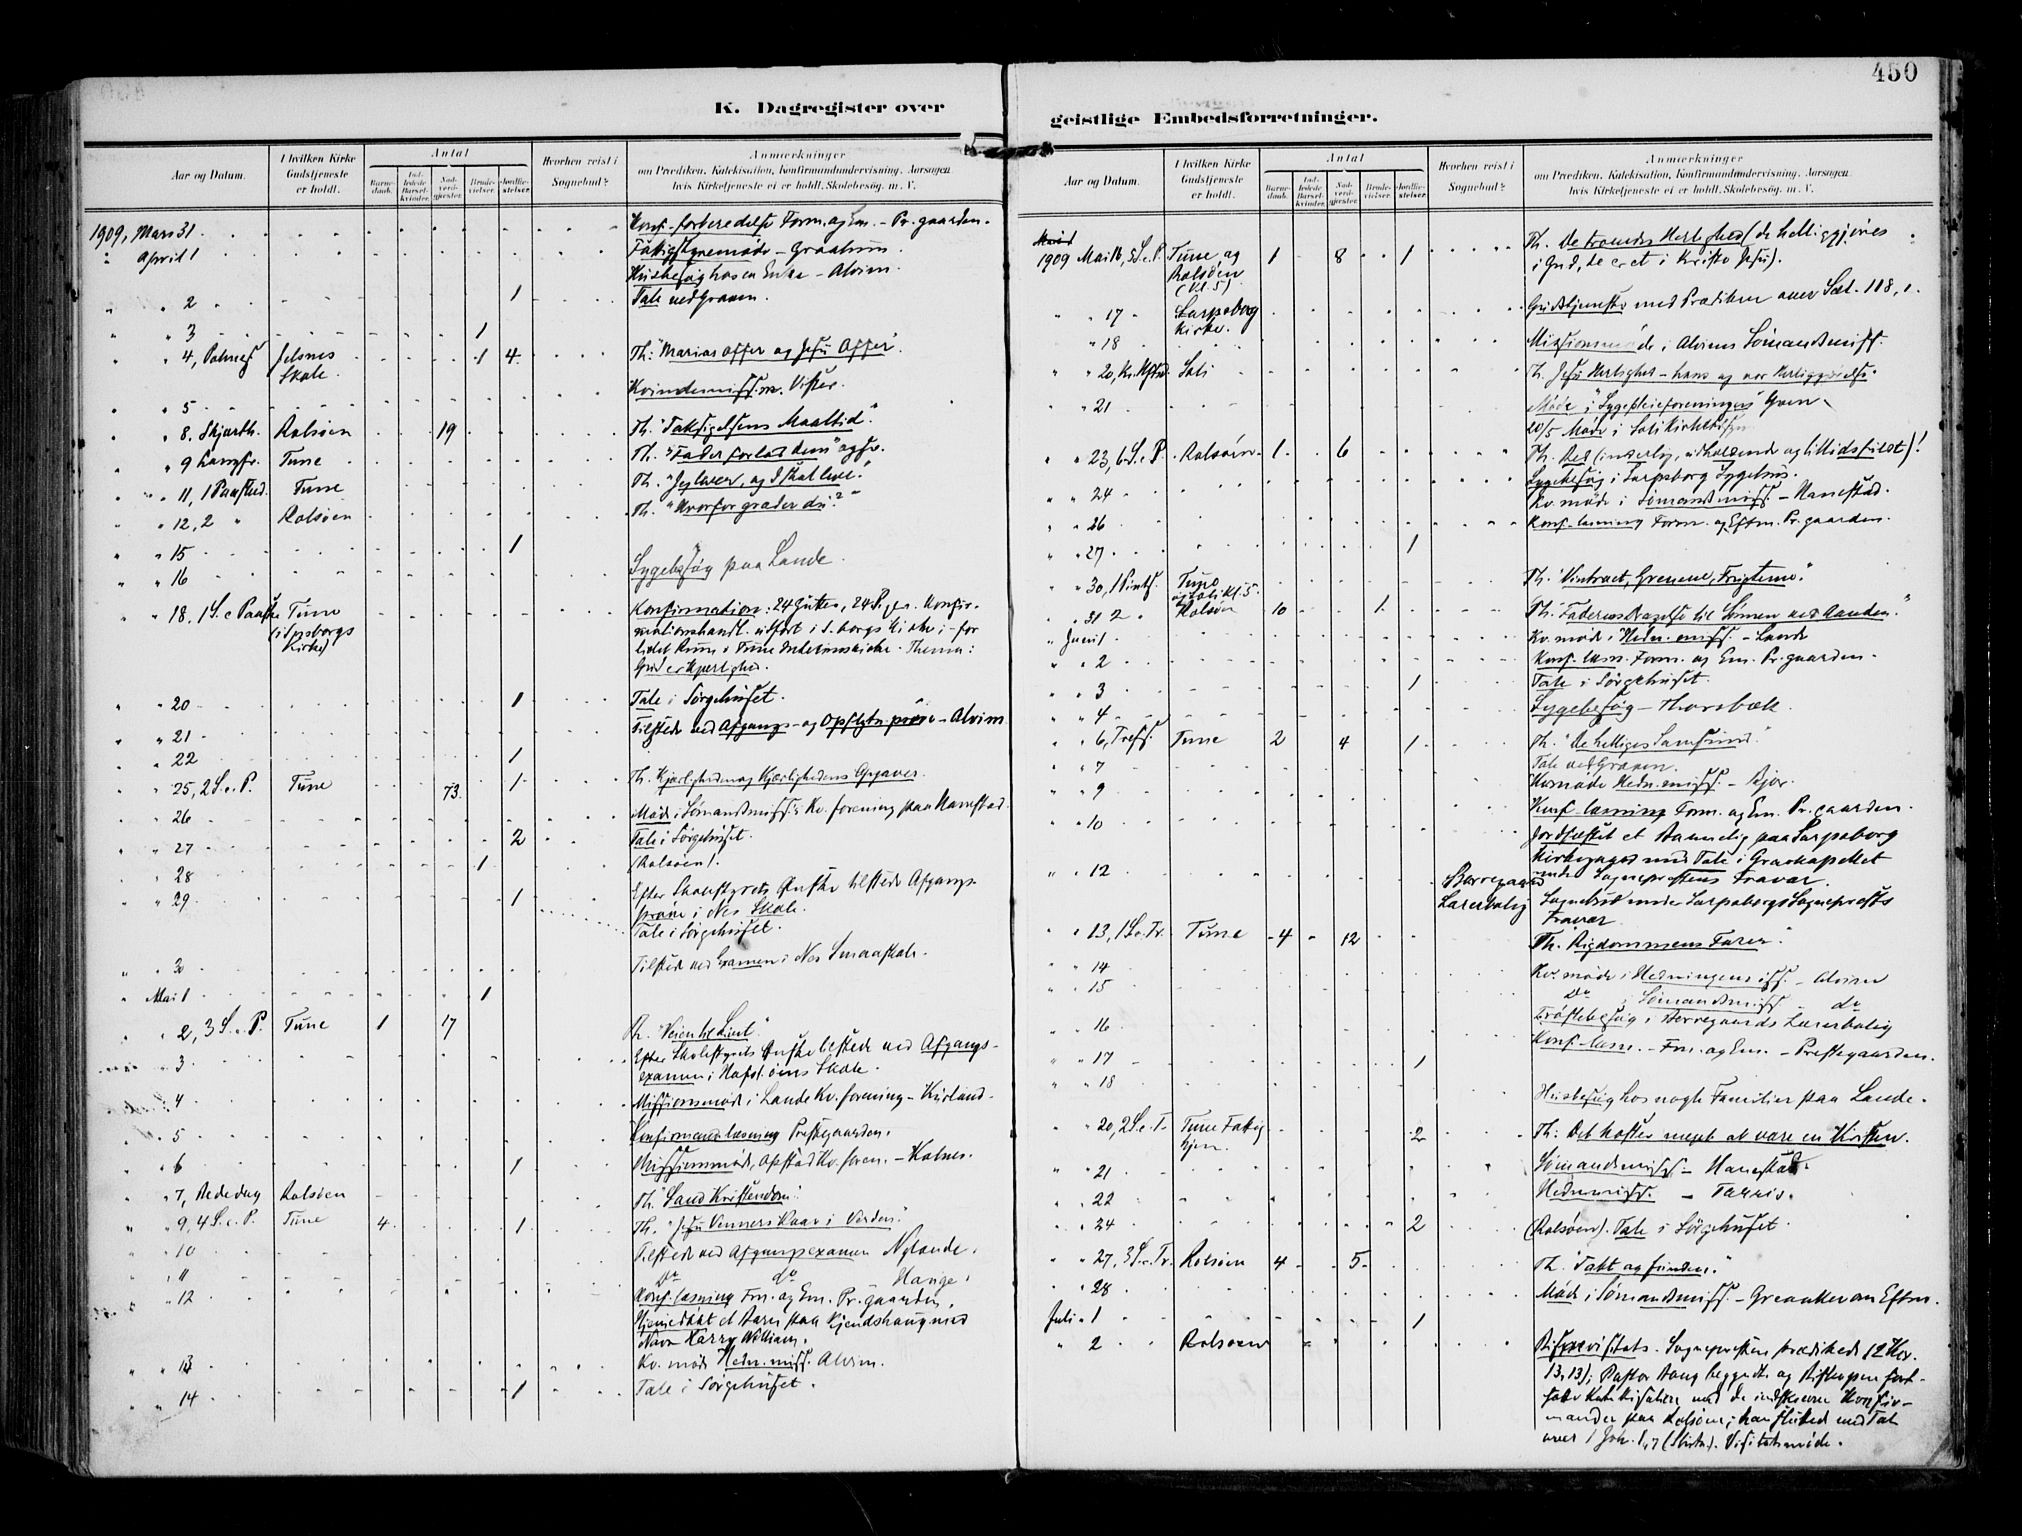 450
K. Dagregister over
geistlige Embedsforretninger.
Aar og Datum.
I hvilken Kirke Gudstjeneste er holdt.
Antal
Barnedaab.
Indledede Barselkvinder.
Nadverdgjester.
Brudevielser.
Jordfæstelser.
Hvorhen reist i Sognebud?
Anmærkninger
om Prædiken, Katekisation, Konfirmandundervisning, Aarsagen
hvis Kirketjeneste ei er holdt, Skolebesøg, m. V.
1909, Mars 31 Konf-forberedelse Form. og Em. - Pr. gaarden.
" April 1 Fattigstyremøde - Graalum.
Husbesøg hos en Enke - Alvim.
" " 2 1 Tale ved Graven.
" " 3 1
" " 4, Palmes. Jelsnes Skole 1 4 Th: "Marias Offer og Jesu Offer".
" " 5 Kvindemiss. m. Vister.
" " 8. Skjærth. Rolsøen 19 Th. "Taksigelsens Maaltid".
" " 9 Langfr. Tune Th. "Fader forlad dem" og fr.
" " 11, 1 Paaskd. Tune Th. "Jeg lever, og I skal leve".
" " 12, 2 " Rolsøen Th. "Hvorfor græder du?"
" " 15 1
" " 16 Sygebesøg paa Lande.
" " 18. 1 S. e Paaske Tune (i Spsborgs Kirke) Konfirmation: 24 Gutter, 24 Piger. Konfir-
mationshandl. udført i S.borgs Kirke i for
lidet Rum i Tune Interimskirke. Thema:
Gud er kjærlighed.
" " 20 1 Tale i Sørgehuset.
" " 21 Tilstede ved Afgangs- og Opflytn.prøve - Alvim
" " 22 1
" " 25, 2 S. e. P. Tune 73 1 Th. Kjærligheden og Kjærlighedens Opgaver.
" " 26 Møde i Sømandsmiss.s Kv. forening paa Hanestad.
" " 27 2 Tale i Sørgehuset.
" " 28 1 (Rolsøen).
" " 29 1 Efter Skolestyrets Ønske tilstede Afgangs-
prøve i Nes Skole.
Tale i Sørgehuset.
" " 30 Tilstede ved Examen i Nes Smaaskole.
" Mai 1 1
" " 2, 3 S. e. P. Tune 1 17 Th. "Veien til Livet".
" " 3 Efter Skolestyrets Ønske tilstede ved Afgangs-
examen i Hafsl.øens Skole.
" " 4 Missionsmøde i Lande Kv. forening - Kurland.
" " 5 Konfirmandlæsning Prestegaarden.
" " 6 1 Missionsmøde, Opstad Kv. foren. - Holnes.
" " 7, Bededag Rolsøen Th. "Sand Kristendom".
" " 9, 4 S. e. P. Tune 4 1 Th. "Jesu Venners Kaar i Verden".
" " 10 Tilstede ved Afgangsexamen Nylande.
" " 11 do do Hauge.
" " 12 Konf. læsning Fm. og Em. Pr. gaarden.
Hjemedøbt et Barn paa Hjendshaug med
Navn Harry William.
" " 13 Kv. møde Hedn. miss. Alvim.
" " 14 1 Tale i Sørgehuset.
1909 Mai 16, 5 S. e. P. Tune og Rolsøen (Kl. 5) 1 8 1 Th. De troendes Herlighed (de helliggjøres
i Gud, de er et i Kristo Jesu).
" " 17 Sarpsborg Kirke. Gudstjeneste med Prædiken over Sal. 118, 1.
" " 18 Missionsmøde i Alvims Sømandsmiss.
" " 20, Kr. Hftd. Soli Th. Jesu Herlighed - hans og vor Herliggjørelse.
" " 21 Møde i "Sygepleieforeningen" Goen
20/5 Møde i Soli Kirketilsyn
" " 23, 6 S. e. P. Rolsøen 1 6 Th. Bed (inderlig, udholdende og tillidsfuldt)!
" " 24 Sygebesøg i Sarpsborg Sygehus.
Kv. møde i Sømandsmiss - Hanestad.
" " 26 Konf-læsning Form. og Eftm. Pr. gaarden.
" " 27 1
" " 30, 1 Pintsd. Tune og Soli kl. 5 Th. "Vintræet, Grenene, Frugterne".
" " 31 2 " Rolsøen 10 1 Th. "Faderens Dragelse til Sønnen ved Aanden."
" Juni 1 Kv. møde i Hedn. miss. - Lande
" " 2 Konf. læsn. Form. og Em. Pr. gaarden.
" " 3 1 Tale i Sørgehuset.
" " 4 Sygebesøg - Thorsbæk.
" " 6, Trefs. Tune 2 4 1 Th. "De helliges Samfund".
" " 7 Tale ved Graven.
" " 9 Kv. møde Hedn. miss. - Bjør.
" " 10 Konf-læsning Form. og Em. Pr. gaarden.
Jordfæstet et Barnelig paa Sarpsborg
Kirkegaard med Tale i Gravkapellet
under Sogneprestens Fravær.
" " 12 Borregaard Lærerbolig Sognebud under Sarpsborgs Sogneprests
Fravær.
" " 13, 1 S. e. Tr. Tune 4 12 Th. "Rigdommens Farer".
" " 14 Kv. møde i Hedningemiss. - Alvim
" " 15 do i Sømandsmiss - do
" " 16 Trøstebesøg i Borregaards Lærerbolig
" " 17 1 Konf-læsn. - Fm. og Em. - Prestegaarden.
" " 18 Husbesøg hos nogle Familier paa Lande.
" " 20, 2 S. e. T. Tune Fattighjem. 2 Th: Det koster meget at være en Kristen.
" " 21 Sømandsmiss - Hanestad.
" " 22 Hednmiss. - Tarris.
" " 24 2 (Rolsøen). Tale i Sørgehuset
" " 27, 3 S. e. Tr. Rolsøen 4 5 Th. "Tabt og funden".
" " 28 Møde i Sømandsmiss. - Greaaker om Eftm.
Juli 1 1
" 2 Rolsøen Bispevisitats. Sognepresten prædikede (2 Kor.
13, 13); Pastor Aang begyndte og Biskopen fort-
satte Katekisation med de indskrevne Konfir-
mander paa Rolsøen; han sluttede med Tale
over 1 Joh. 1, 7 (Slutn). Visitatsmøde.